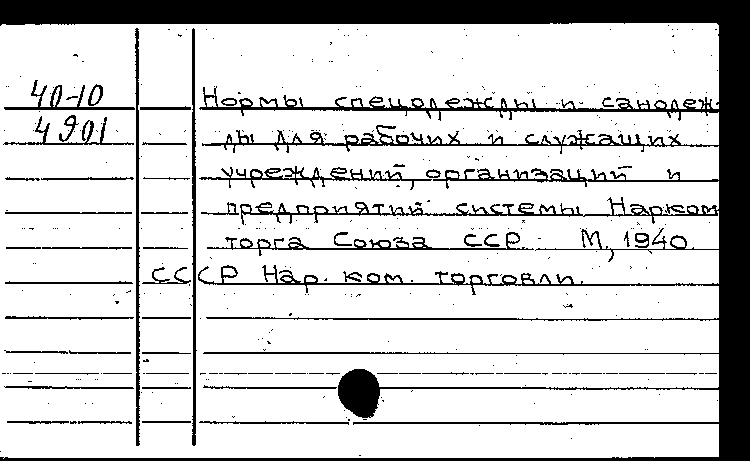 40-10 Нормы спецодежды и санодеж-
4901 ды для рабочих и служащих
учреждений, организаций и
предприятий системы Нарком
торга Союза ССР. М., 1940.
СССР Нар. ком. торговли.